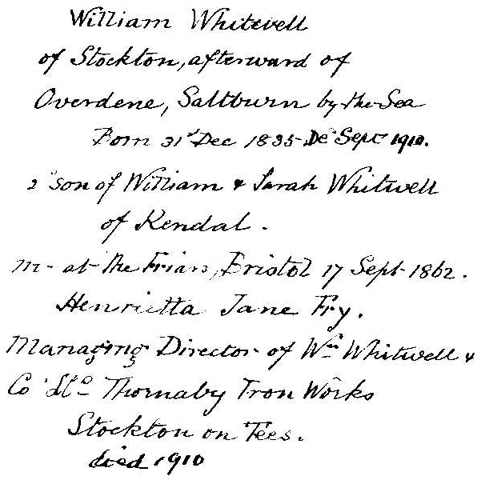 William Whitwell
of Stockton, afterward of
Overdene, Saltburn by-the-Sea
Born 31st Dec 1835 - Dd Sept 1910.
2d son of William & Sarah Whitwell
of Kendal.
m - at the Friars, Bristol 17 Sept 1862.
Henrietta Jane Fry.
Managing Director of Wm Whitwell &
Co Ltd Thornaby Iron Works
Stockton on Tees.
died 1910